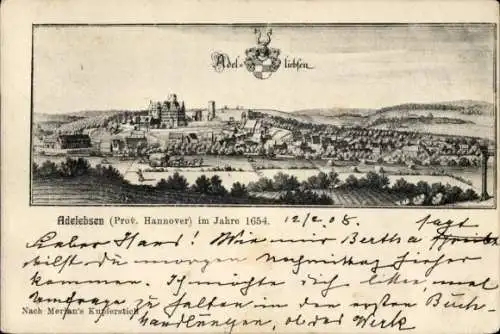 Adel= liebsen
Adelebsen (Prov. Hannover) im Jahre 1654. 12/2.08
Lieber Hans! Wie mir Bertha sagt
willst du morgen Nachmittag hieher
kommen. Ich möchte dich bitten, mal
Umfrage zu halten in den ersten Buch-
handlungen, ob das Werk
Nach Merian's Kupferstich